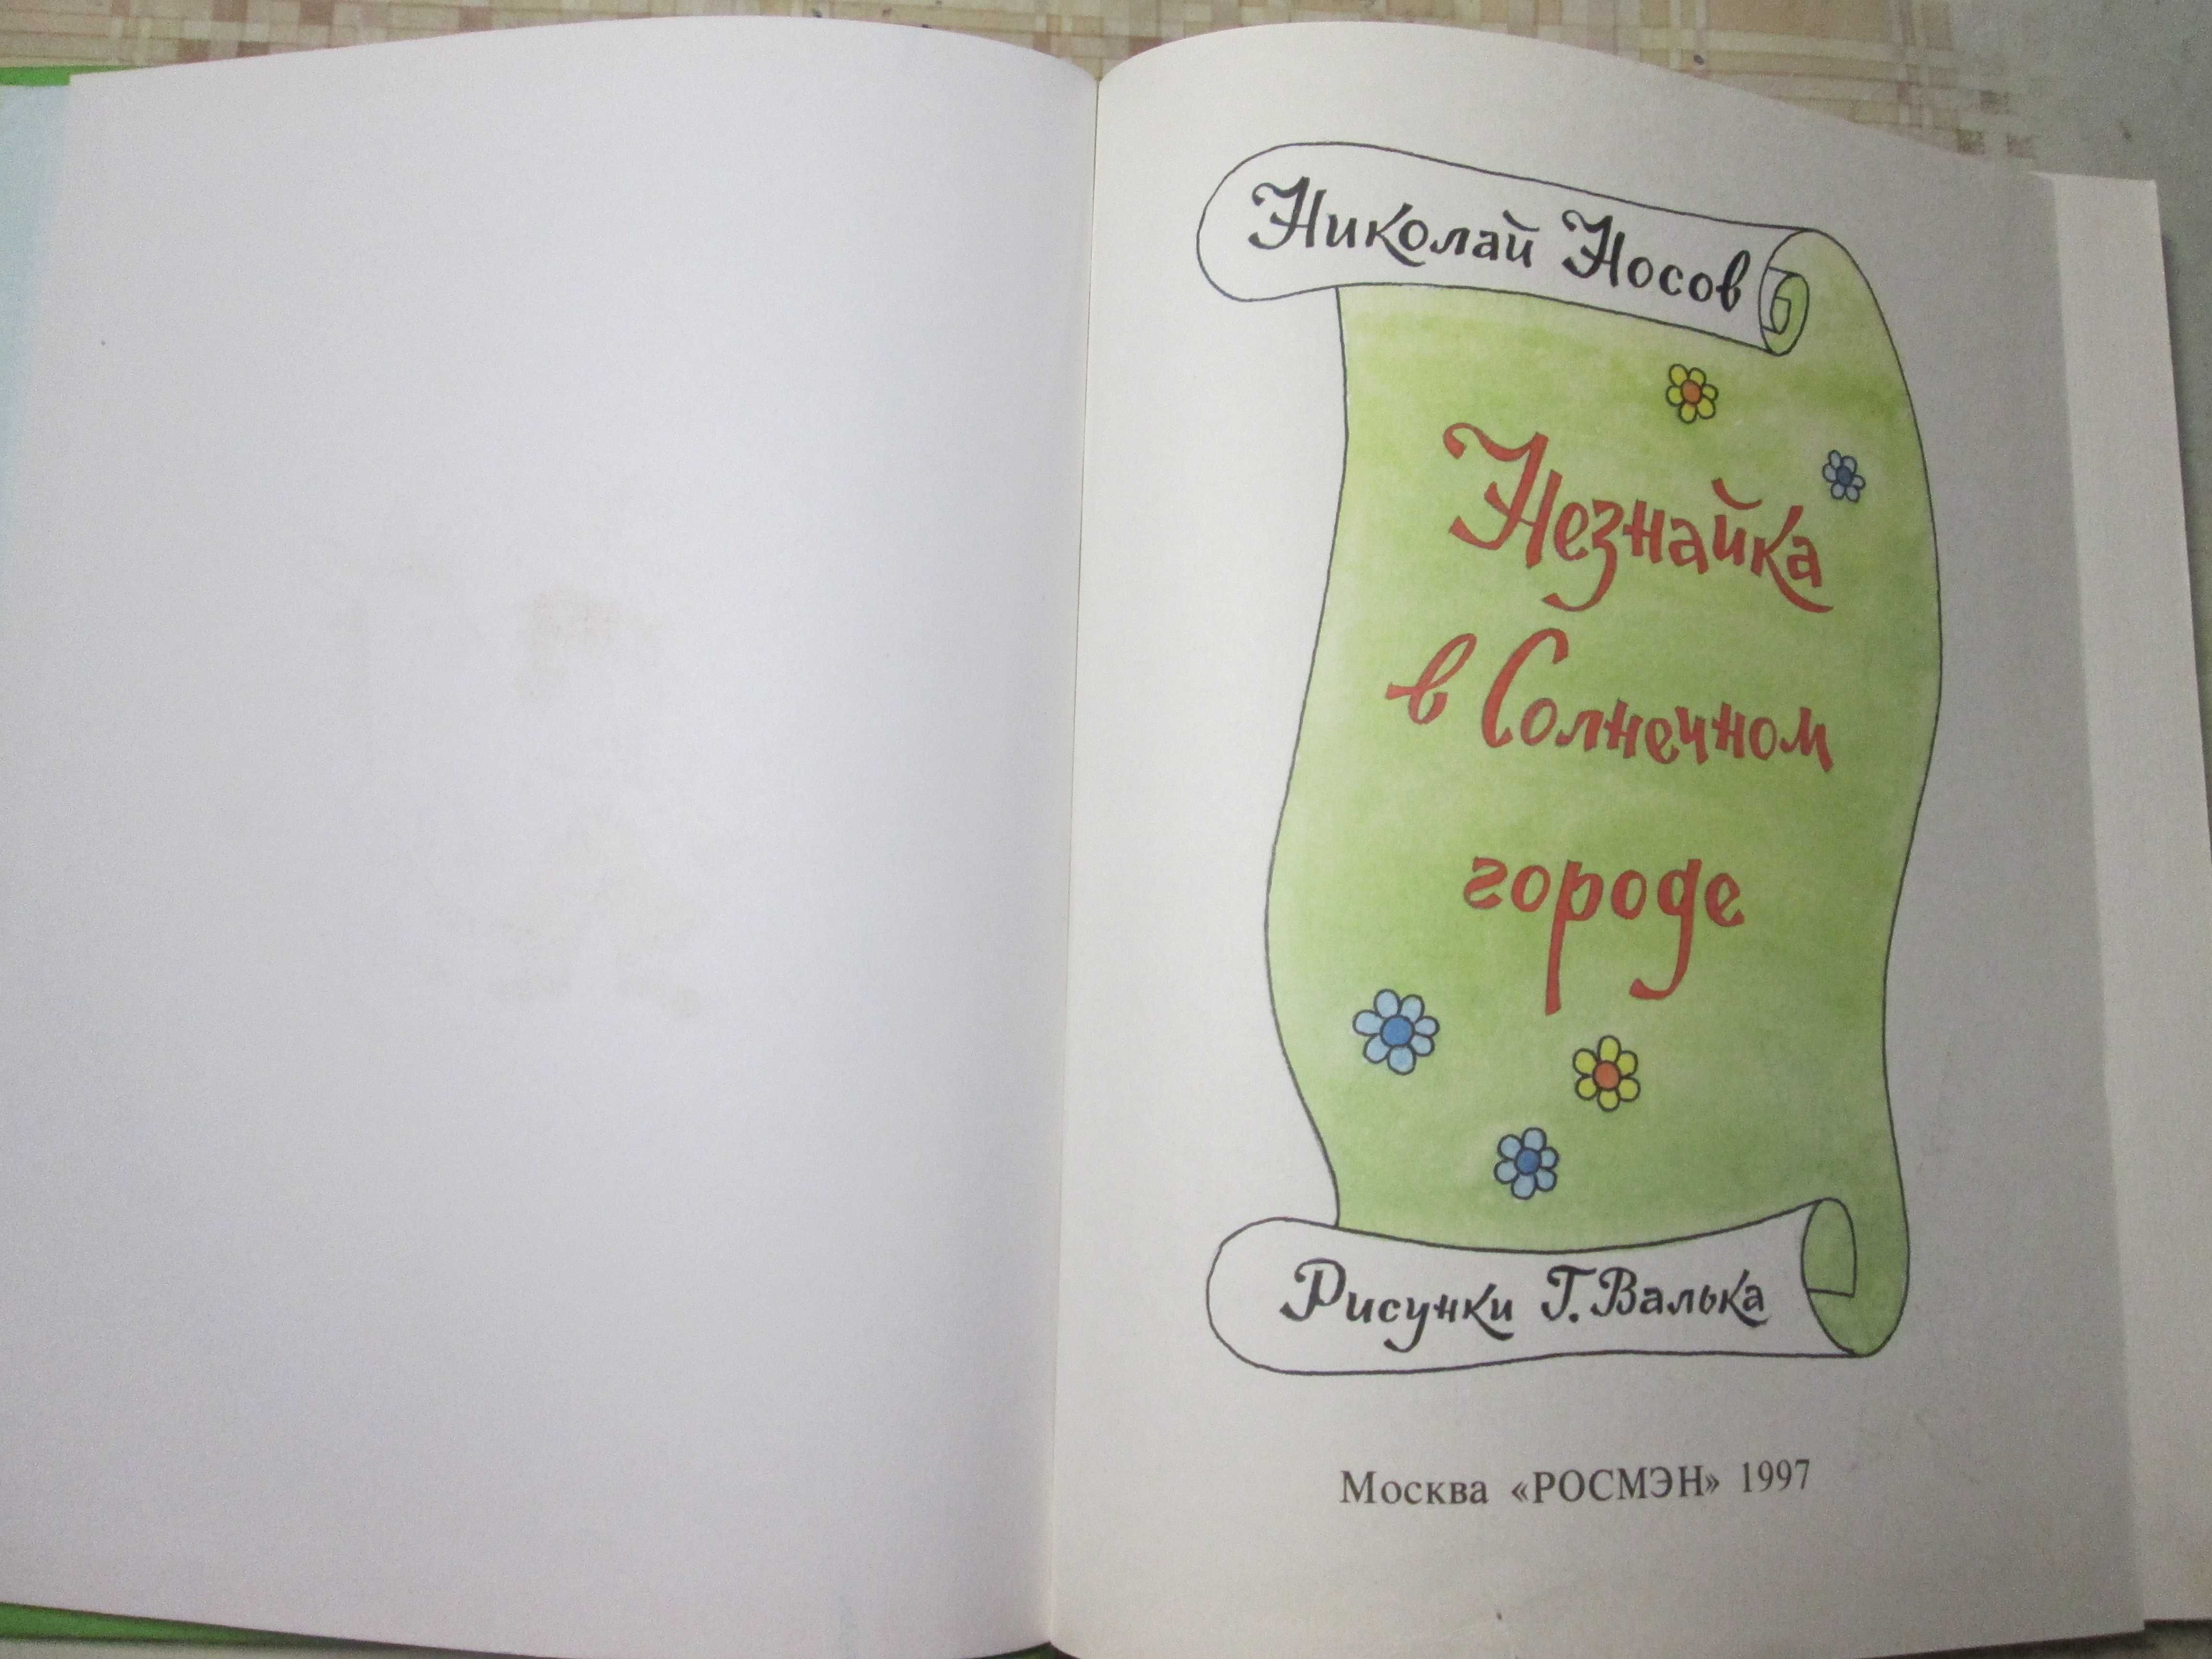 Николай Носов
Незнайка
в Солнечном
городе
Рисунки Г. Валька
Москва «РОСМЭН» 1997